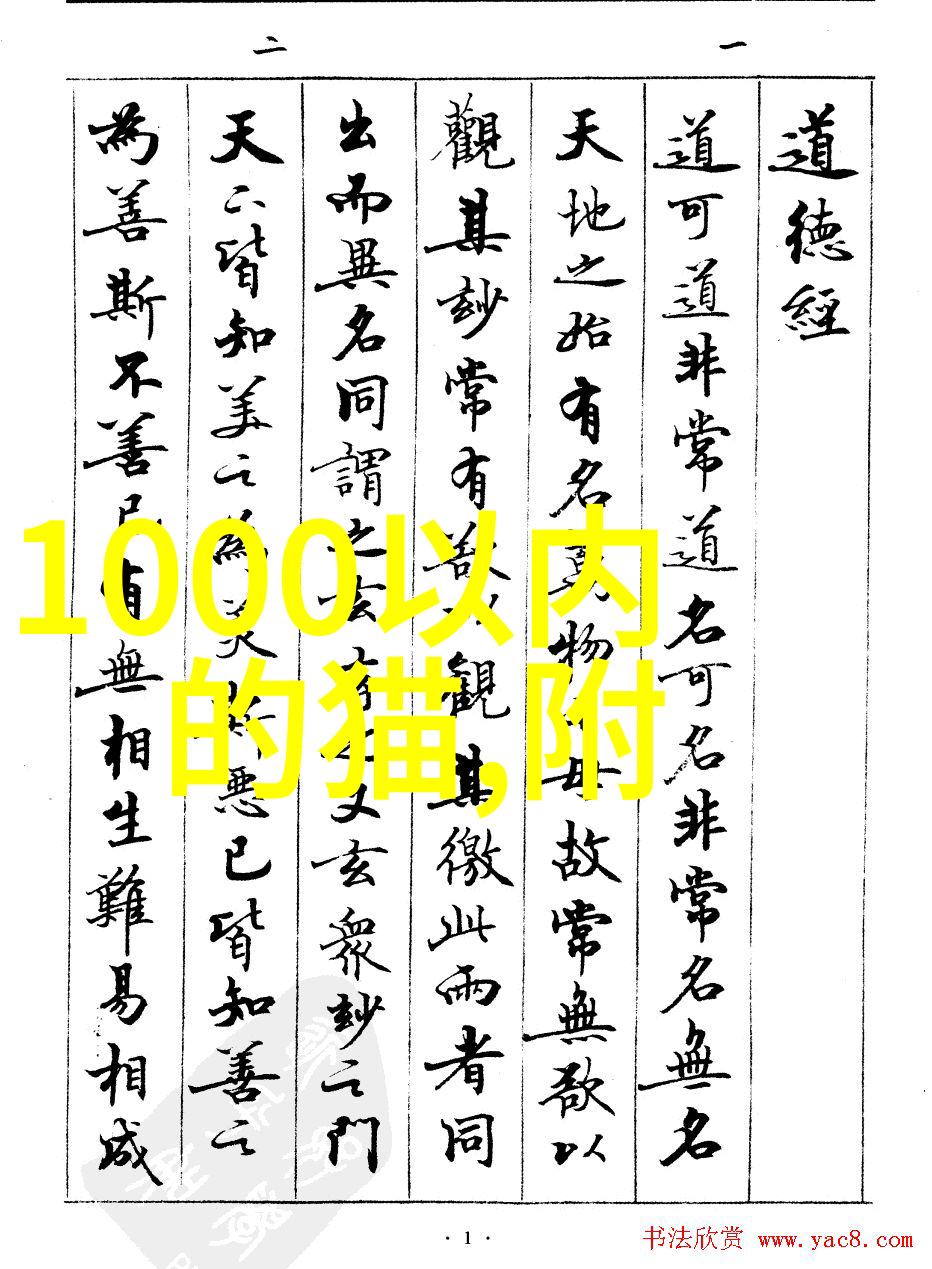 一
二
道德經
道可道非常道名可名非常名無名
天地之始有名萬物之母故常無欲以
觀其玅常有欲以觀其徼此兩者同
出而異名同謂之玄玄之又玄眾玅之門
天下皆知美之為美斯惡已皆知善之
為善斯不善已有無相生難易相成
1000以内
的猫,附
· 1 ·
书法欣赏 www.yac8.com